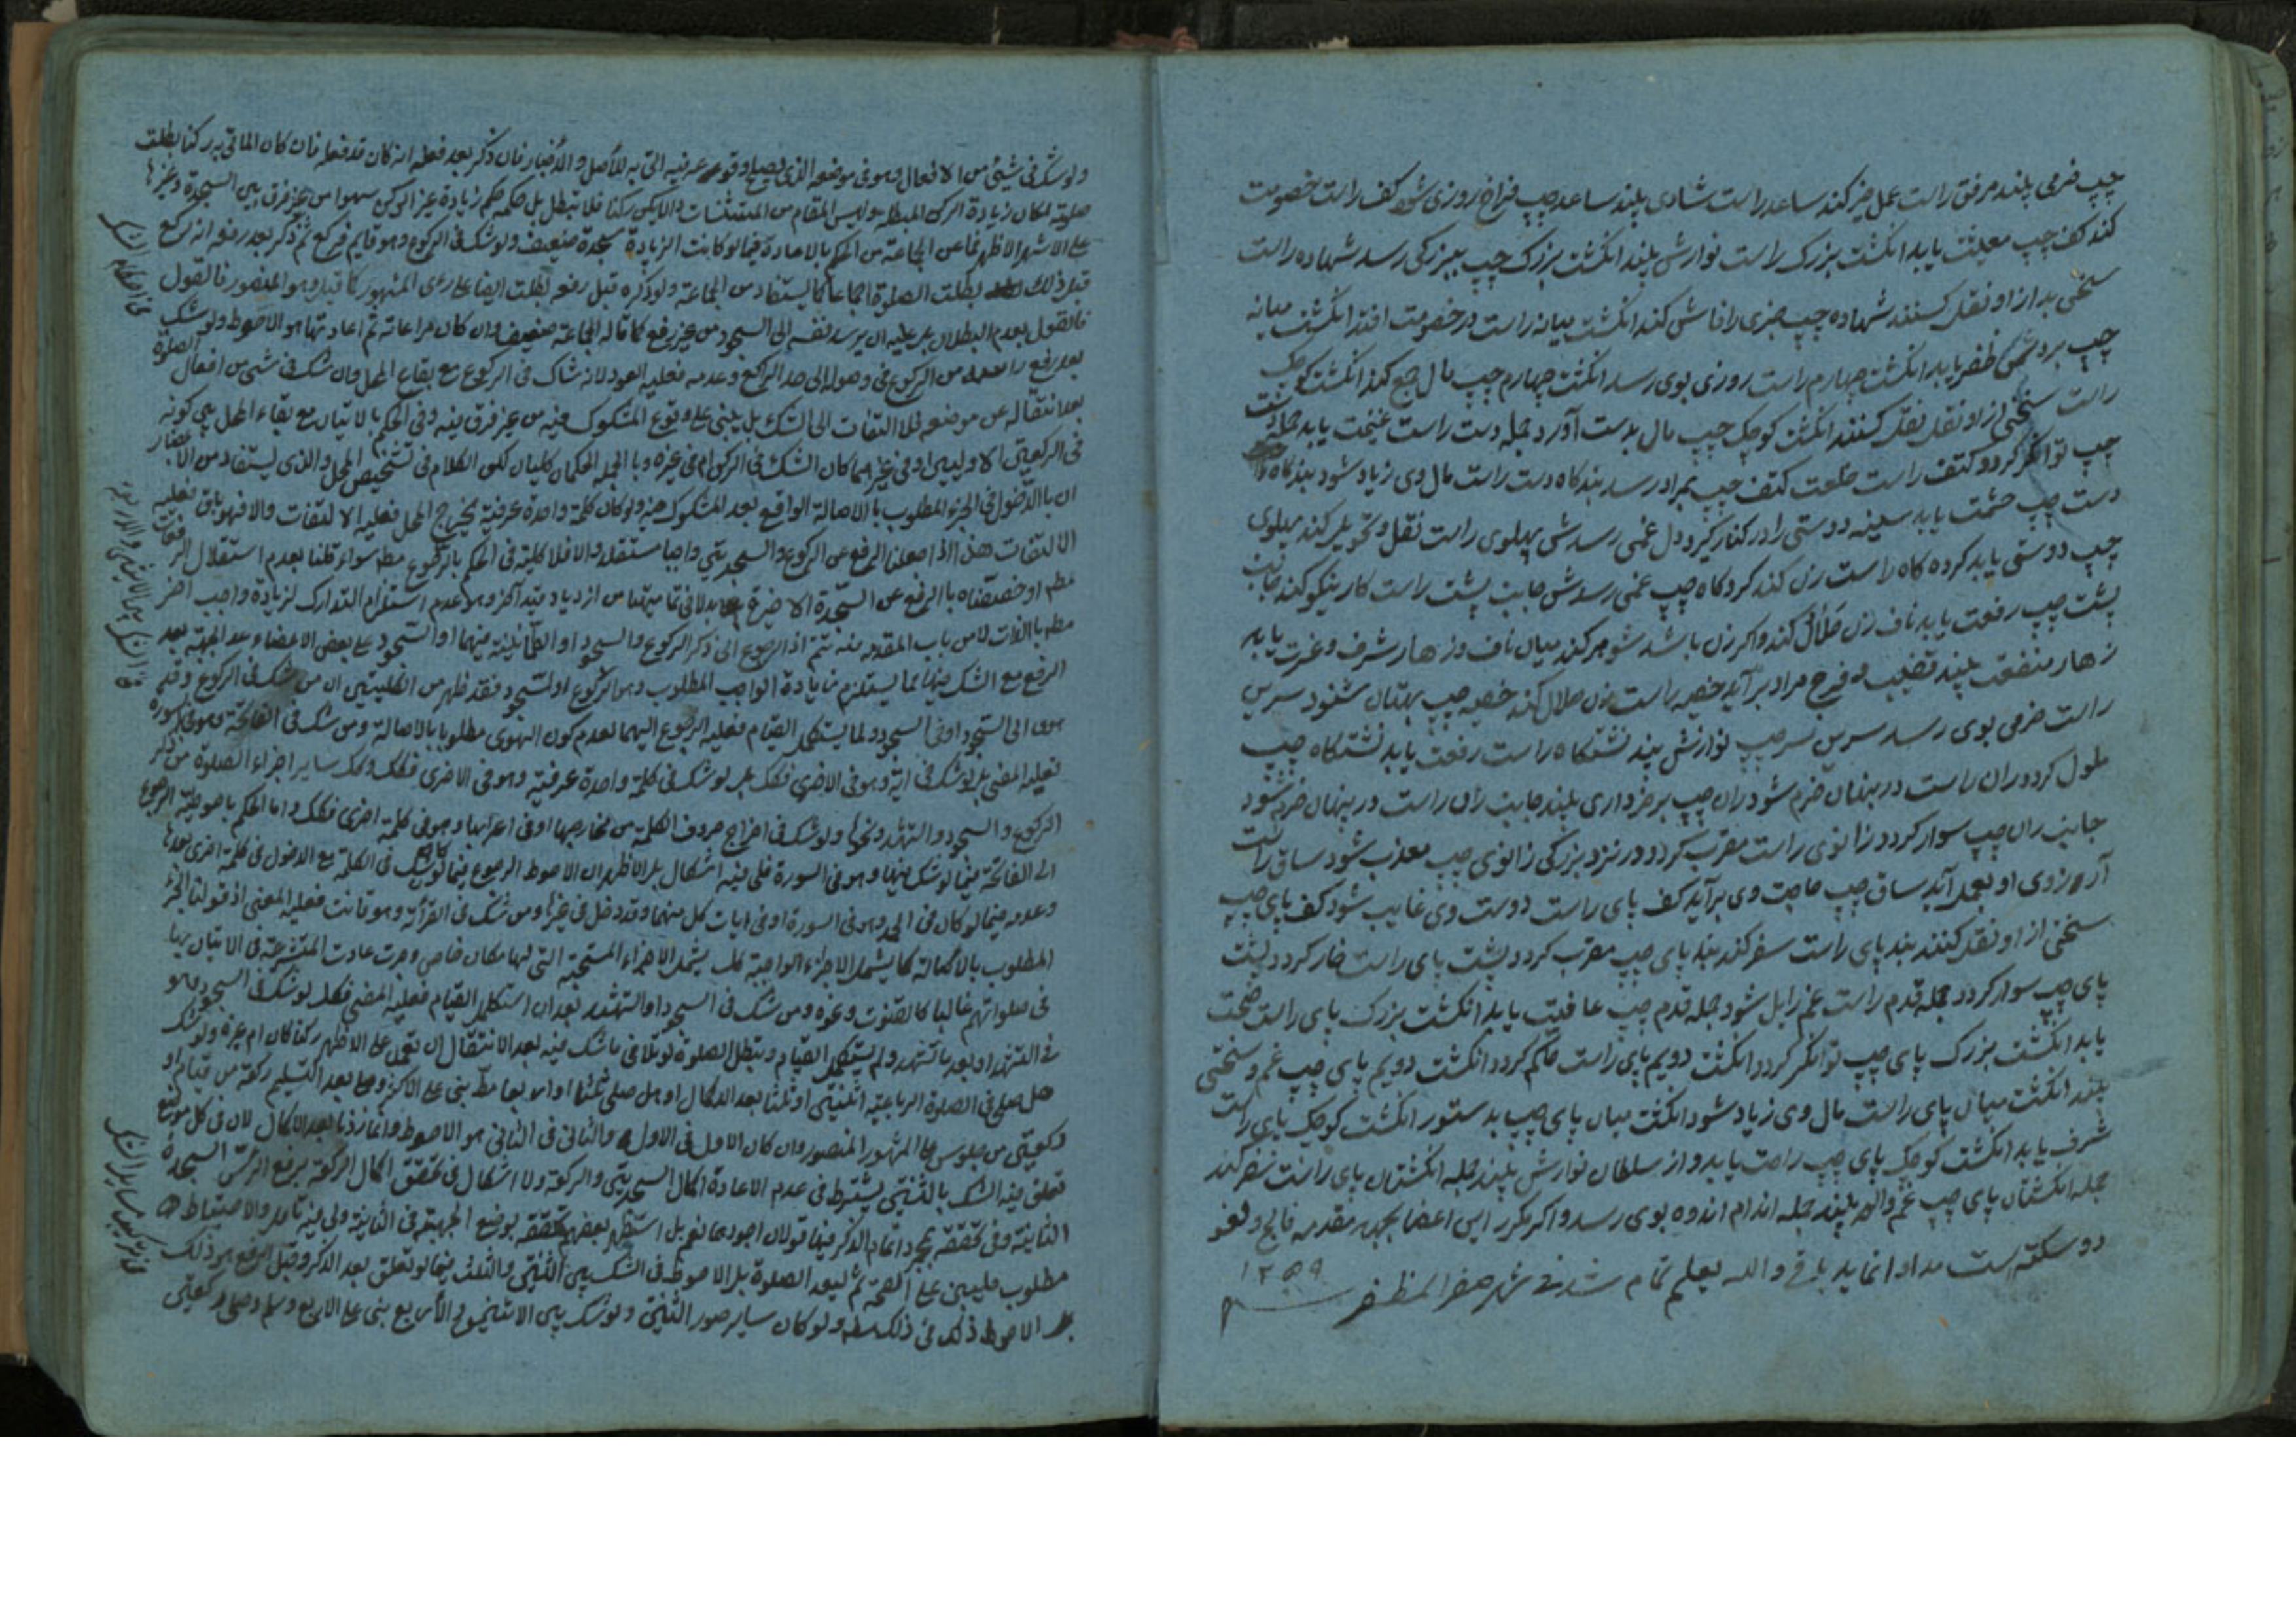 چپ خرمی بیند مرفق راست عمل خیر کند ساعد راست شادی بیند ساعد چپ فراخ روزی شود کف راست خصومت
کند کف چپ معیشت یابد انکشت بزرک راست نوازش بیند انکشت بزرک چپ ببزرکی رسد شهاده راست
سخنی بد از او نقل کنند شهاده چپ خبری را فاش کند انکشت میانه راست در خصومت افتد انکشت میانه
چپ بر دشمن ظفر یابد انکشت چهارم راست روزی بوی رسد انکشت چهارم چپ مال جمع کند انکشت کوچک
راست سخنی از او نقل کنند انکشت کوچک چپ مال بدست آورد جمله دست راست غنیمت یابد جمله دست
چپ توانکر کردد کتف راست خلعت کتف چپ بمراد رسد بندکاه دست راست مال وی زیاد شود بندکاه
دست چپ حشمت یابد سینه دوستی را در کنار کیرد دل غمی رسدش پهلوی راست نقل و تحویل کند پهلوی
چپ دوستی یابد کرده کاه راست زن کند کرده کاه چپ غمی رسدش جانب پشت راست کار نیکو کند جانب
پشت چپ رفعت یابد ناف زن حلال کند واکر زن باشد شوهر کند میان ناف وزهار شرف و عزت یابد
زهار منفعت بیند قضیب و فرج مراد برآید خصیه راست زن حلال کند خصیه چپ بهتان شنود سرین
راست خرمی بوی رسد سرین چپ نوازش بیند نشتکاه راست رفعت یابد نشتکاه چپ
ملول کردد ران راست در پنهان خرم شود ران چپ برخورداری بیند جانب ران راست در پنهان خرم شود
جانب ران چپ سوار کردد زانوی راست مقرب کردد در نزد بزرکی زانوی چپ معذب شود ساق راست
آرزوی او بعمل آید ساق چپ حاجت وی برآید کف پای راست دوست وی غایب شود کف پای چپ
سخنی از او نقل کنند بند پای راست سفر کند بند پای چپ مقرب کردد پشت پای راست خار کردد پشت
پای چپ سوار کردد جمله قدم راست غم زایل شود جمله قدم چپ عافیت یابد انکشت بزرک پای راست صحت
یابد انکشت بزرک پای چپ توانکر کردد انکشت دویم پای راست حاکم کردد انکشت دویم پای چپ غم و سختی
بیند انکشت میان پای راست مال وی زیاد شود انکشت میان پای چپ بدستور انکشت کوچک پای راست
شرف یابد انکشت کوچک پای چپ راحت یابد و از سلطان نوازش بیند جمله انکشتان پای راست سفر کند
جمله انکشتان پای چپ غم و الم بیند جمله اندام اندوه بوی رسد واکر مکرر این اعضا بجهد مقدمه فالج و لقوه
و سکته است مداوا نماید باقی والله یعلم تمام شد فی شهر صفر المظفر
۱۲۵۹
ولو شک فی شیئ من الافعال وهو فی موضعه الذی یصلح وقوعه فیه اتی به للأصل و الأخبار فان ذکر بعد فعله انه کان قد فعله فان کان الماتی به رکنا بطلت
صلوته لمکان زیادة الرکن المبطلة ولیس المقام من المستثنیات و ان لم یکن رکنا فلا تبطل بل حکمه حکم زیادة غیر الرکن سهوا من غیر فرق بین السجدة وغیرها
علی الاشهر الاظهر فما عن الجماعة من الحکم بالاعادة فیما لو کانت الزیادة سجدة ضعیف ولو شک فی الرکوع وهو قایم فرکع ثم ذکر بعد رفعه انه رکع
قبل ذلک بطلت الصلوة اجماعا کما یستفاد من الجماعة ولو ذکره قبل رفعه بطلت ایضا علی رأی المشهور کما قیل وهو المنصور فالقول
فالقول بعدم البطلان بل علیه ان یرسل نفسه الی السجود من غیر رفع کما قاله الجماعة ضعیف وان کان مراعاته ثم اعادتها هو الاحوط ولو شک
بعد رفع راسه من الرکوع فی وصوله الی حد الراکع وعدمه فعلیه العود لانه شاک فی الرکوع مع بقاء المحل وان شک فی شیئ من افعال الصلوة
بعد انتقاله عن موضعه فلا التفات الی الشک بل یبنی علی وقوع المشکوک فیه من غیر فرق فیه وفی الحکم بالاتیان مع بقاء المحل بین کونه
فی الرکعتین الاولیین او فی غیرهما کان الشک فی الرکن ام فی غیره وبالجملة الحکمان کلیان لکن الکلام فی تشخیص المحل والذی یستفاد من الأخبار
ان بالدخول فی الجزء المطلوب بالاصالة الواقع بعد المشکوک فیه ولو کان کلمة واحدة عرفیة یخرج المحل فعلیه الالتفات والا فهو باق فعلیه
الالتفات هذا اذا جعلنا الرفع عن الرکوع والسجدتین واجبا مستقلا والا فلا کلیة فی الحکم بالرکوع مطلقا سواء قلنا بعدم استقلال الرفعات
الرفع مع الشک فیها انما یستلزم زیادة الواجب المطلوب وهو الرکوع او السجود فقد ظهر من الکلیتین ان من شک فی الرکوع وقد
هوی الی السجود او فی السجود ولما یستکمل القیام فعلیه الرجوع الیهما لعدم کون الهوی مطلوبا بالاصالة ومن شک فی الفاتحة وهو فی السورة
فعلیه المضی بل لو شک فی ایة وهو فی الاخری فکک بل لو شک فی کلمة واحدة عرفیة وهو فی الاخری فکک وکک سایر اجزاء الصلوة من ذکر
الرکوع والسجود والتشهد ونحوها ولو شک فی اخراج حروف الکلمة من مخارجها او فی اعرابها وهو فی کلمة اخری فکک واما الحکم باحوطیة الرجوع
الی الفاتحة فیما لو شک فیها وهو فی السورة ففیه اشکال بل الاظهر ان الاحوط الرجوع فیما لو شک فی الکلمة مع الدخول فی کلمة اخری بعدها
المطلوب بالاصالة کما یشمل الاجزاء الواجبة کک یشمل الاجزاء المستحبة التی لها مکان خاص وجرت عادت المتشرعة فی الاتیان بها
فی صلواتهم غالبا کالقنوت وغیره ومن شک فی السجود او التشهد بعد ان استکمل القیام فعلیه المضی فکک لو شک فی السجود وهو
فی التشهد او بعد ما تشهد ولم یستکمل القیام وتبطل الصلوة لو تلافی ما شک فیه بعد الانتقال ان تعمد علی الاظهر رکنا کان ام غیره ولو شک
هل صلی فی الصلوة الرباعیة اثنتین او ثلثا بعد الاکمال او هل صلی ثلثا او اربعا مطلقا بنی علی الاکثر وصلی بعد التسلیم رکعة من قیام او
رکعتین من جلوس علی المشهور المنصور وان کان الاول فی الاول والثانی فی الثانی هو الاحوط وانما زدنا بعد الاکمال لان فی کل موضع
تعلق فیه الشک بالثنتین یشترط فی عدم الاعادة اکمال السجدتین والرکعة ولا اشکال فی تحقق اکمال الرکعة برفع الراس السجدة
الثانیة وفی تحققه بمجرد اتمام الذکر فیها قولان اجودهما نعم بل استظهر بعضهم تحققه بوضع الجبهة فی الثانیة ولی فیه تامل والاحتیاط هنا
مطلوب فلیبن علی الصحة ثم لیعد الصلوة بل الاحوط فی الشک بین الثنتین والثلث فیما لو تعلق بعد الذکر وقبل الرفع هو ذلک
بل الاحوط ذلک فی ذلک مطلقا ولو کان سایر صور الثنتین ولو شک بین الاثنتین والأربع بنی علی الاربع وسلم وصلی رکعتین